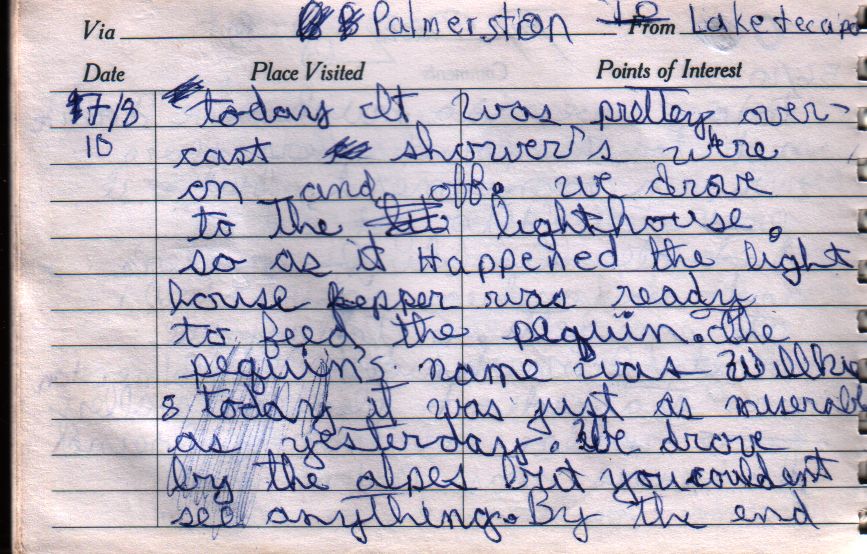 Via 8 Palmerstion to From Laketecapo
Date Place Visited Points of Interest
17/8 today It was prettey over-
10 cast shower's were
on and off. we drove
to the lighthouse.
so as it Happened the light
house kepper was ready
to feed the pequin. The
pequin's name was Willkie
8 today it was just as miserable
as yesterday. We drove
by the alpes but you couldent
see anything. By the end